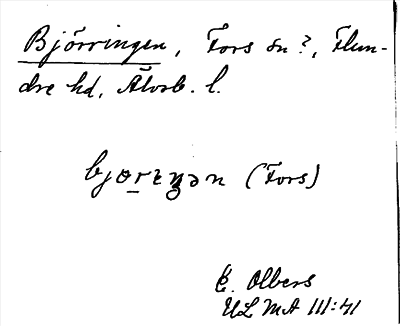 Björringen, Fors sn?, Flun-
dre hd, Älvsb. l.
bjɵrɪŋən (Fors)
E. Olbers
ULMA III:41